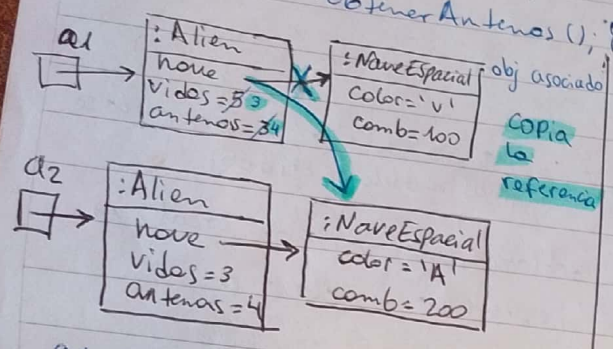 obtenerAntenas();
a1
:Alien
nave
vidas=5 3
antenas=3 4
X
:NaveEspacial
color='v'
comb=100
obj asociado
copia
la
referencia
a2
:Alien
nave
vidas=3
antenas=4
:NaveEspacial
color='A'
comb=200